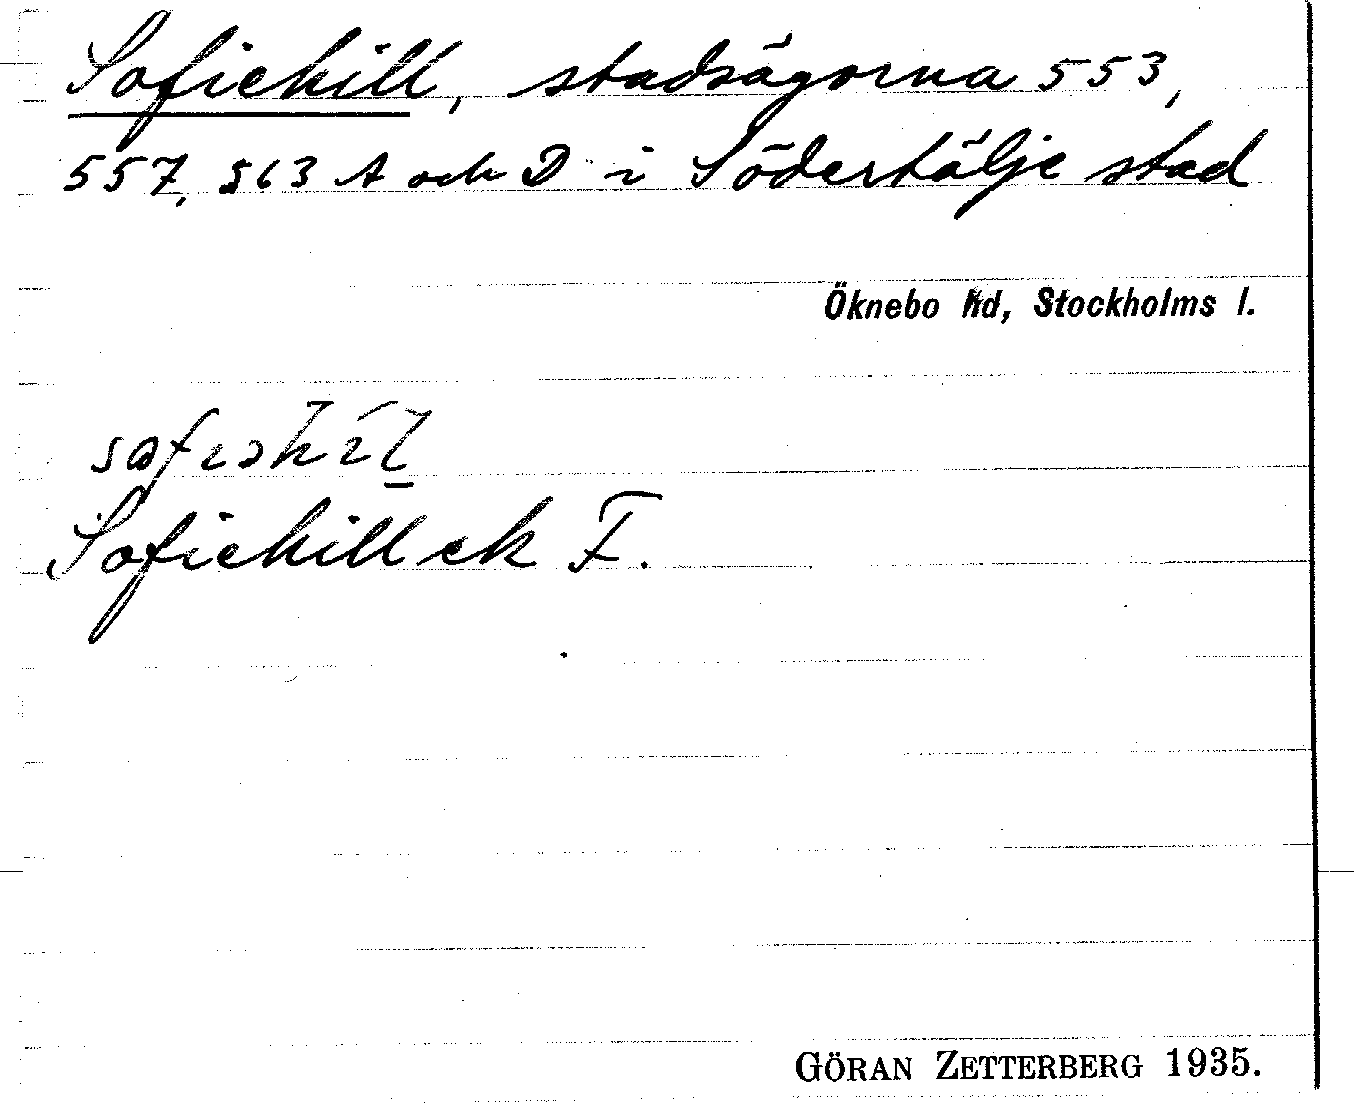 Sofiehill, stadsägorna 553,
557, 563 A och D i Södertälje stad
Öknebo hd, Stockholms l.
Sofiehill ek F.
GÖRAN ZETTERBERG 1935.